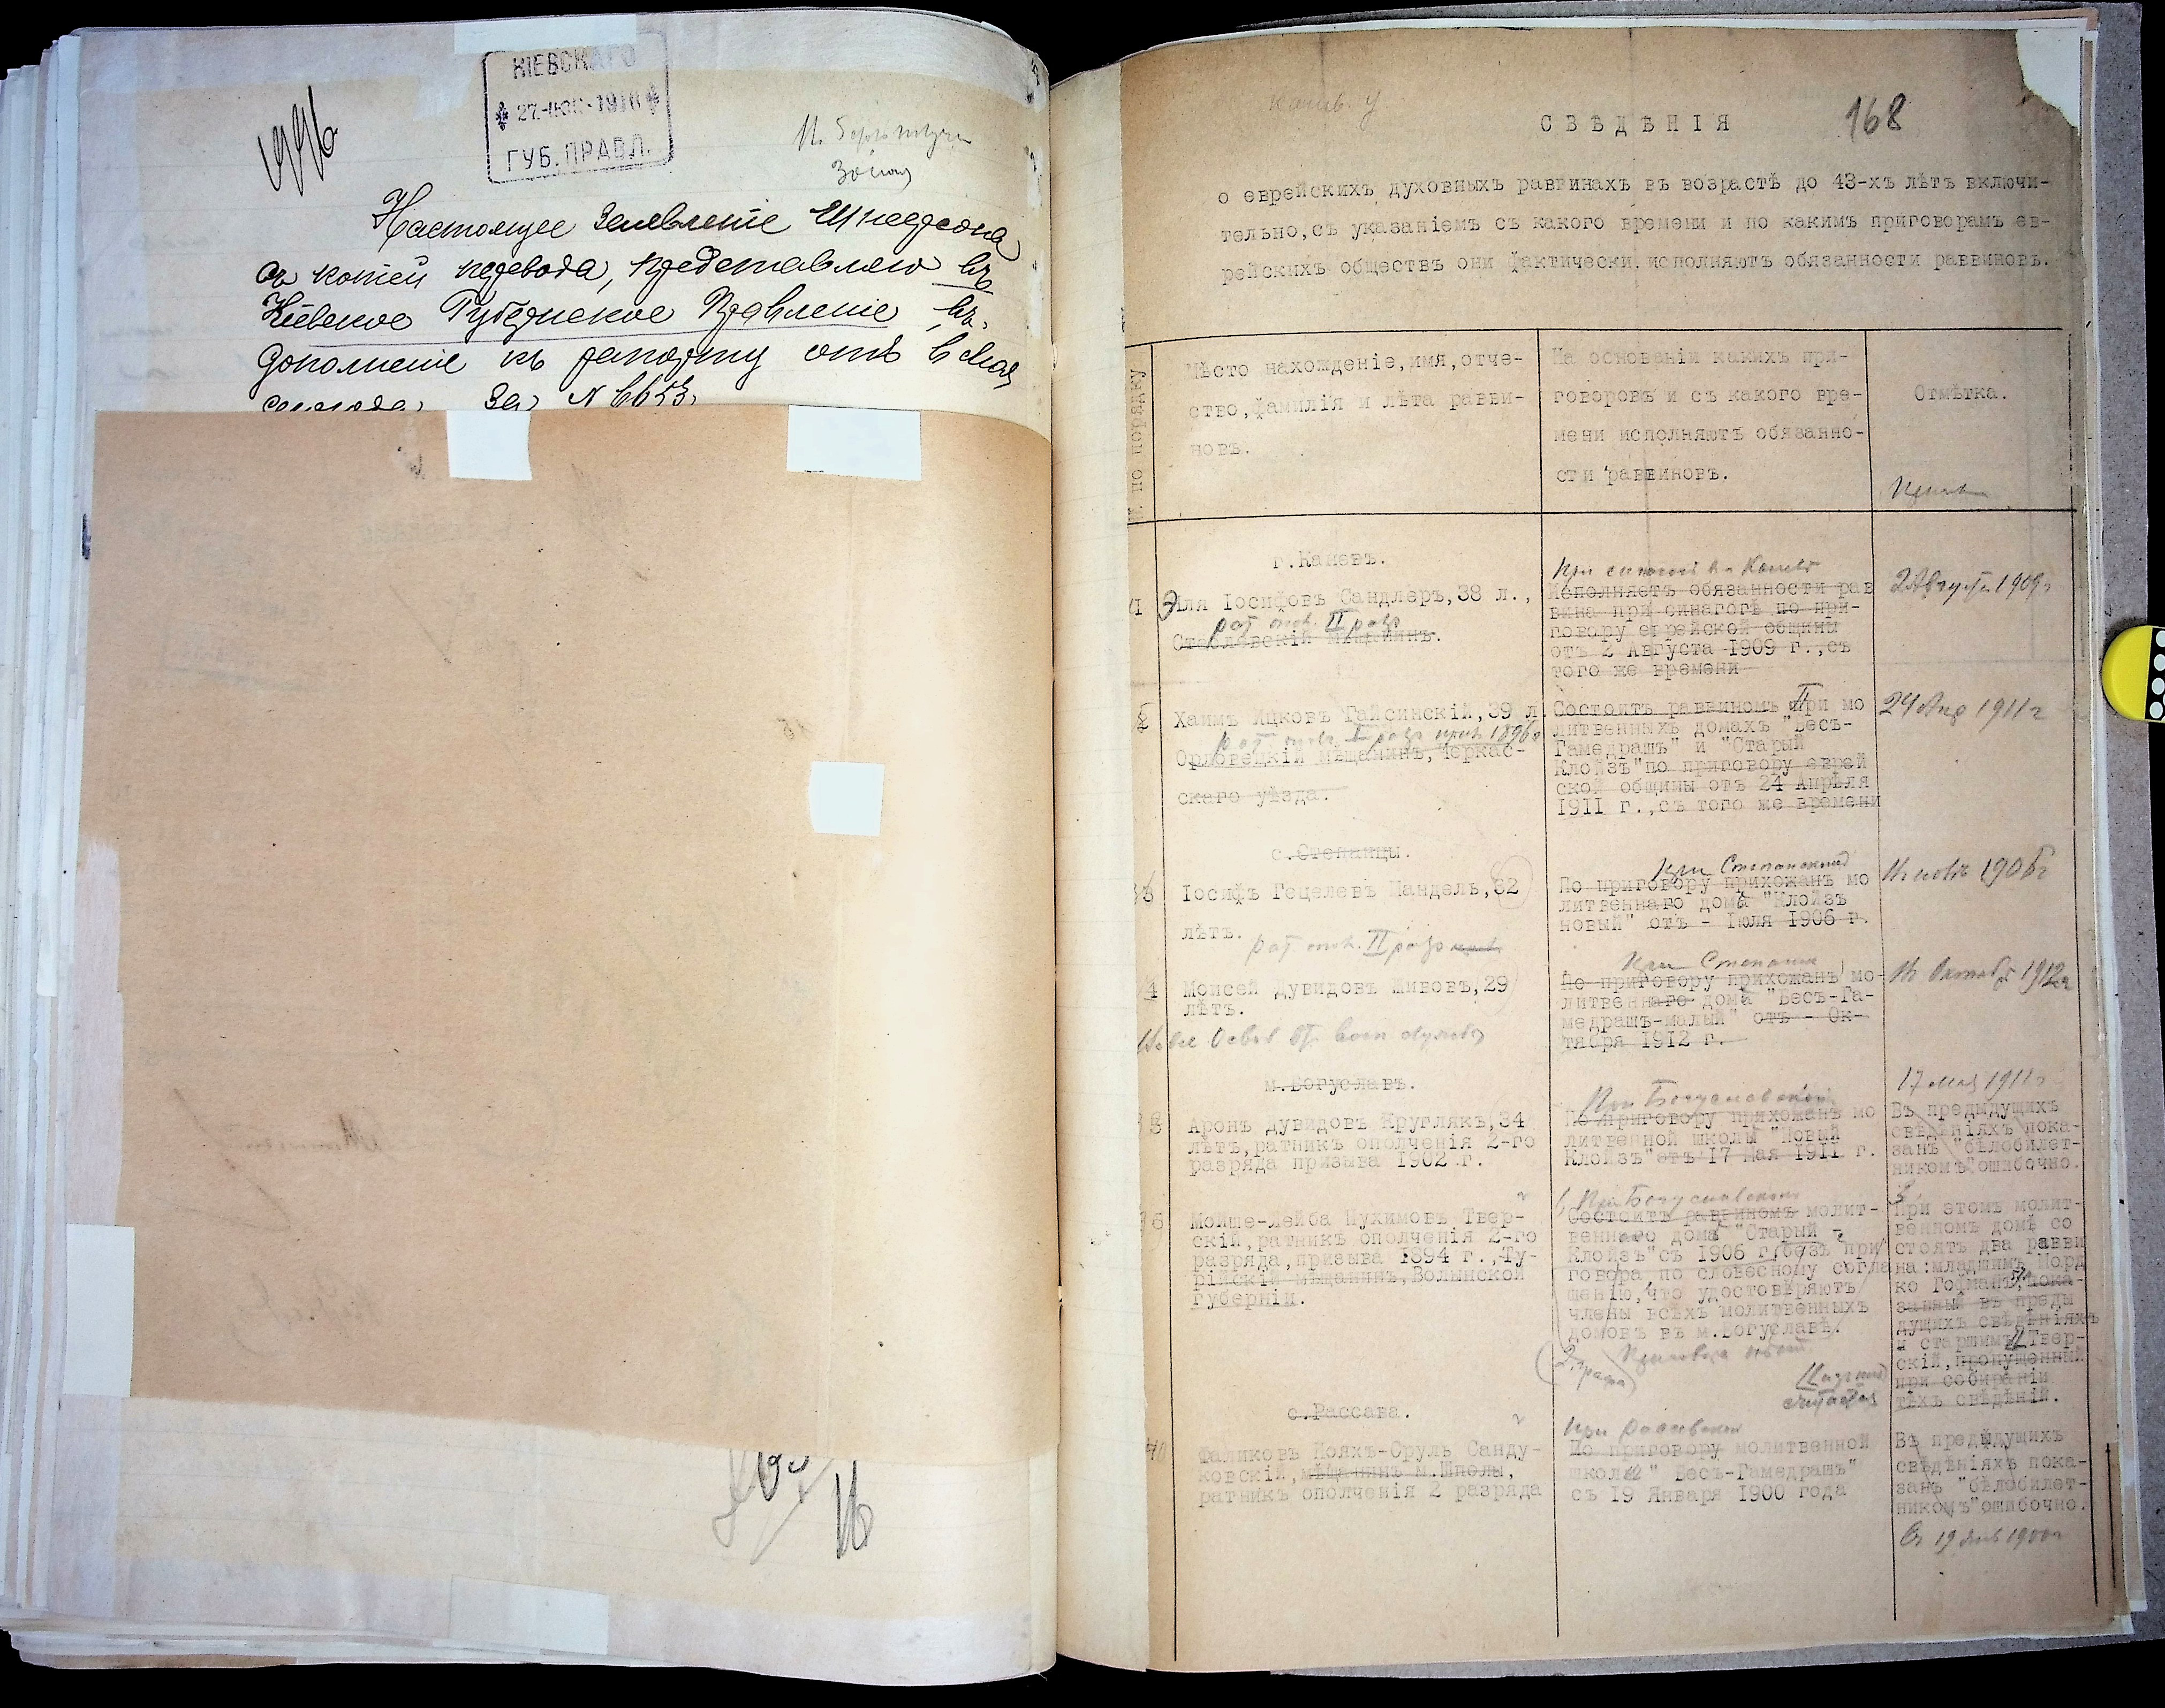 1996
КІЕВСКАГО
27-ІЮН-1916
ГУБ. ПРАВЛ.
Настоящее заявленіе Шнеерсона
съ копіей перевода, представляю въ
Кіевское Губернское Правленіе, въ
дополненіе къ рапорту отъ 6 мая
за № 6653.
16
168
СВѢДѢНІЯ
о еврейскихъ духовныхъ раввинахъ въ возрастѣ до 43-хъ лѣтъ включи-
тельно,съ указаніемъ съ какого времени и по какимъ приговорамъ ев-
рейскихъ обществъ они фактически исполняютъ обязанности раввиновъ.
по порядку
Мѣсто нахожденіе,имя,отче-
ство,фамилія и лѣта равви-
новъ.
На основаніи какихъ при-
говоровъ и съ какого вре-
мени исполняютъ обязанно-
сти раввиновъ.
Отмѣтка.
г.Каневъ.
1
Эля Іосифовъ Сандлеръ,38 л.,
рат опол. II разр
Стеблевскій мѣщанинъ.
При синагогѣ въ Каневѣ
Исполняетъ обязанности рав
вина при синагогѣ по при-
говору еврейской общины
отъ 2 Августа 1909 г.,съ
того же времени
2 Августа 1909 г
2
Хаимъ Ицковъ Гайсинскій,39 л.
рат опол. II разр приз 1896 г
Орловецкій мѣщанинъ, Черкас-
скаго уѣзда.
Состоитъ раввиномъ при мо
литвенныхъ домахъ "Бесъ-
Гамедрашъ" и "Старый
Клойзъ"по приговору еврей
ской общины отъ 24 Апрѣля
1911 г.,съ того же времени
24 Апр 1911 г
с.Степанцы.
3
Іосифъ Гецелевъ Мандель,32
лѣтъ.
рат опол. II разр
При Степанской
По приговору прихожанъ мо
литвеннаго дома "Клойзъ
новый" отъ - Іюля 1906 г.
1906 г
4
Моисей Дувидовъ Шивовъ,29
лѣтъ.
При Степанск
По приговору прихожанъ мо-
литвеннаго дома "Бесъ-Га-
медрашъ-малый" отъ - Ок-
тября 1912 г.
Октябр 1912 г
м.Богуславъ.
5
Аронъ Дувидовъ Круглякъ,34
лѣтъ,ратникъ ополченія 2-го
разряда призыва 1902 г.
При Богуславской
По приговору прихожанъ мо
литвенной школы "Новый
Клойзъ"отъ 17 Мая 1911 г.
17 мая 1911 г
Въ предыдущихъ
свѣдѣніяхъ пока-
занъ "бѣлобилет-
никомъ"ошибочно.
6
Мойше-Лейба Нухимовъ Твер-
скій,ратникъ ополченія 2-го
разряда,призыва 1894 г.,Ту-
рійскій мѣщанинъ,Волынской
губерніи.
При Богуславском
Состоитъ раввиномъ молит-
веннаго дома "Старый -
Клойзъ"съ 1906 г.безъ при
говора,по словесному согла
шенію,что удостовѣряютъ
члены всѣхъ молитвенныхъ
домовъ въ м.Богуславѣ.
При этомъ молит-
венномъ домѣ со
стоятъ два равви
на:младшимъ Морд
ко Гофманъ,пока-
занный въ преды
дущихъ свѣдѣніяхъ
и старшимъ Твер-
скій,пропущенный
при собираніи
тѣхъ свѣдѣній.
с.Рассава.
Фаликовъ Нояхъ-Сруль Санду-
ковскій,мѣщанинъ м.Шполы,
ратникъ ополченія 2 разряда
При Росавской
По приговору молитвенной
школы " Бесъ-Гамедрашъ"
съ 19 Января 1900 года
Въ предыдущихъ
свѣдѣніяхъ пока-
занъ "бѣлобилет-
никомъ"ошибочно.
Съ 19 янв 1900 г